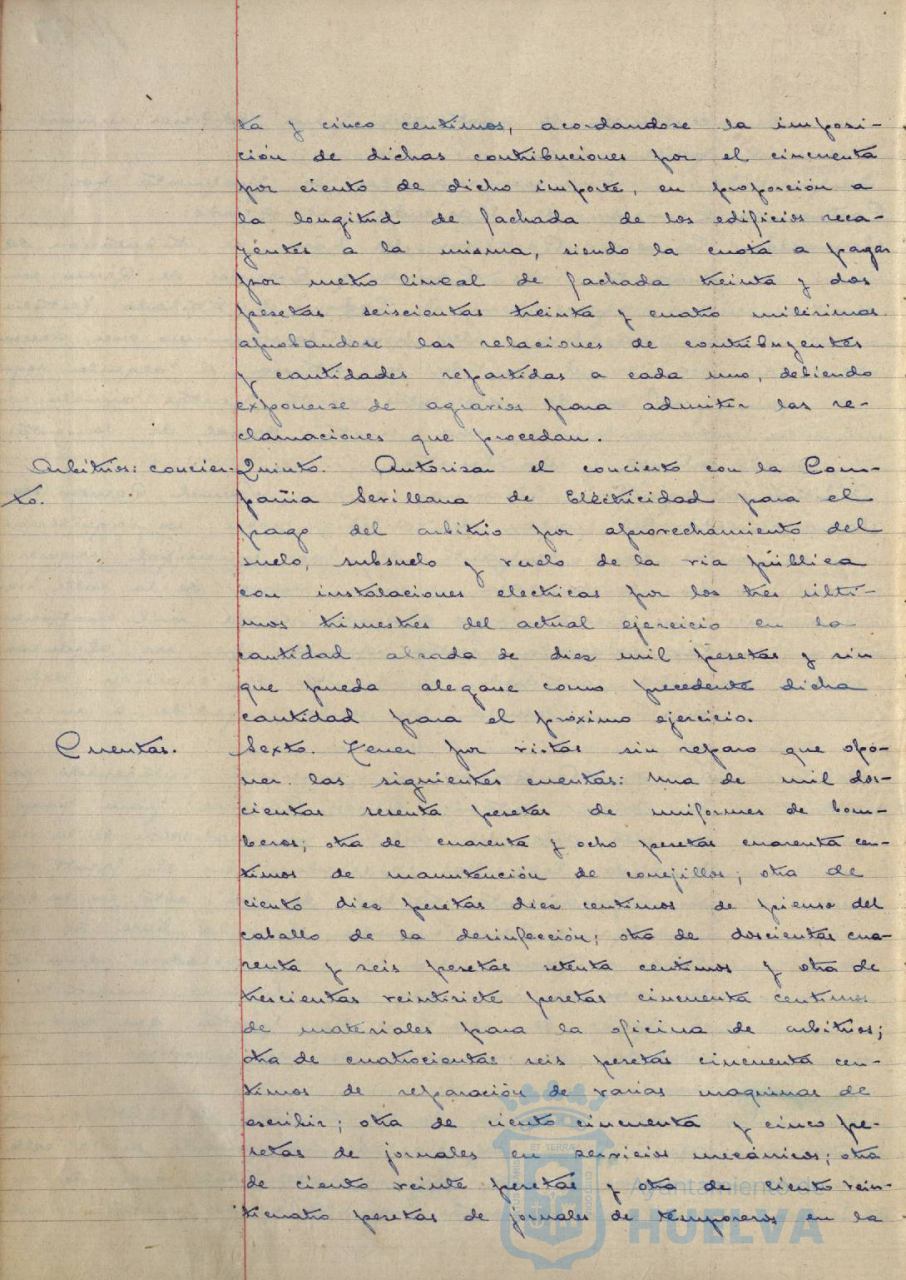 ta y cinco centimos, acordandose la imposi-
ción de dichas contribuciones por el cincuenta
por ciento de dicho importe, en proporción a
la longitud de fachada de los edificios reca-
yentes a la misma, siendo la cuota a pagar
por metro lineal de fachada treinta y dos
pesetas seiscientas treinta y cuatro milisimas
aprobandose las relaciones de contribuyentes
y cantidades repartidas a cada uno, debiendo
exponerse de agravios para admitir las re-
clamaciones que procedan.
Arbitrios: concier-
to.
Quinto. Autorizar el concierto con la Com-
pañia Sevillana de Electricidad para el
pago del arbitrio por aprovechamiento del
suelo, subsuelo y vuelo de la via pública
con instalaciones electricas por los tres ulti-
mos trimestres del actual ejercicio en la
cantidad alzada de diez mil pesetas y sin
que pueda alegarse como precedente dicha
cantidad para el próximo ejercicio.
Cuentas.
Sexto. Tener por vistas sin reparo que opo-
ner las siguientes cuentas: una de mil dos-
cientas sesenta pesetas de uniformes de bom-
beros; otra de cuarenta y ocho pesetas cuarenta cen-
timos de manutención de conejillos; otra de
ciento diez pesetas diez centimos de pienso del
caballo de la desinfección; otra de doscientas cua-
renta y seis pesetas setenta centimos y otra de
trescientas veintisiete pesetas cincuenta centimos
de materiales para la oficina de arbitrios;
otra de cuatrocientas seis pesetas cincuenta cen-
timos de reparación de varias maquinas de
escribir; otra de ciento cincuenta y cinco pe-
setas de jornales en servicios mecánicos; otra
de ciento veinte pesetas y otra de ciento vein-
ticuatro pesetas de jornales de temporeros en la
Ayuntamiento de
HUELVA